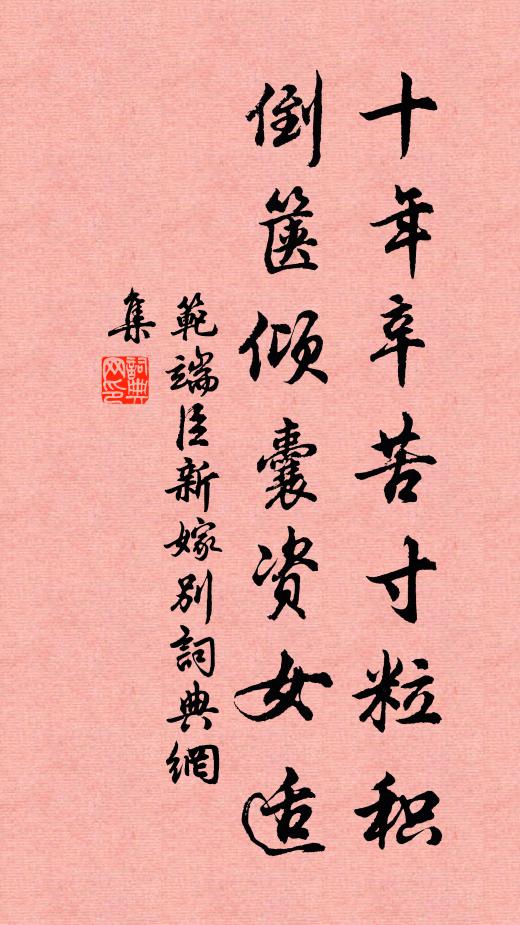 十年辛苦寸粒积
倒箧倾囊资女适
範端臣新嫁别詞典網
集
詞典网印